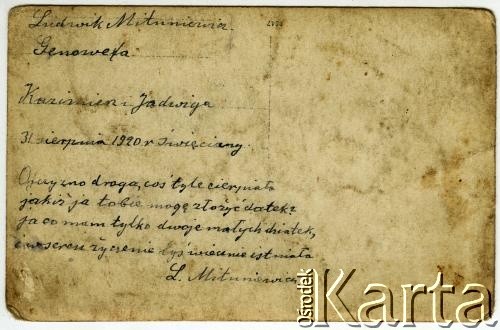 Ludwik Mituniewicz.
Genowefa
Kazimierz i Jadwiga
31 sierpnia 1920 r Święciany.
Ojczyzno droga, coś tyle cierpiała
jakiż ja tobie mogę złożyć datek?
ja co mam tylko dwoje małych dziatek,
i w sercu życzenie byś wiecznie istniała
L. Mituniewicz
Ośrodek
Karta